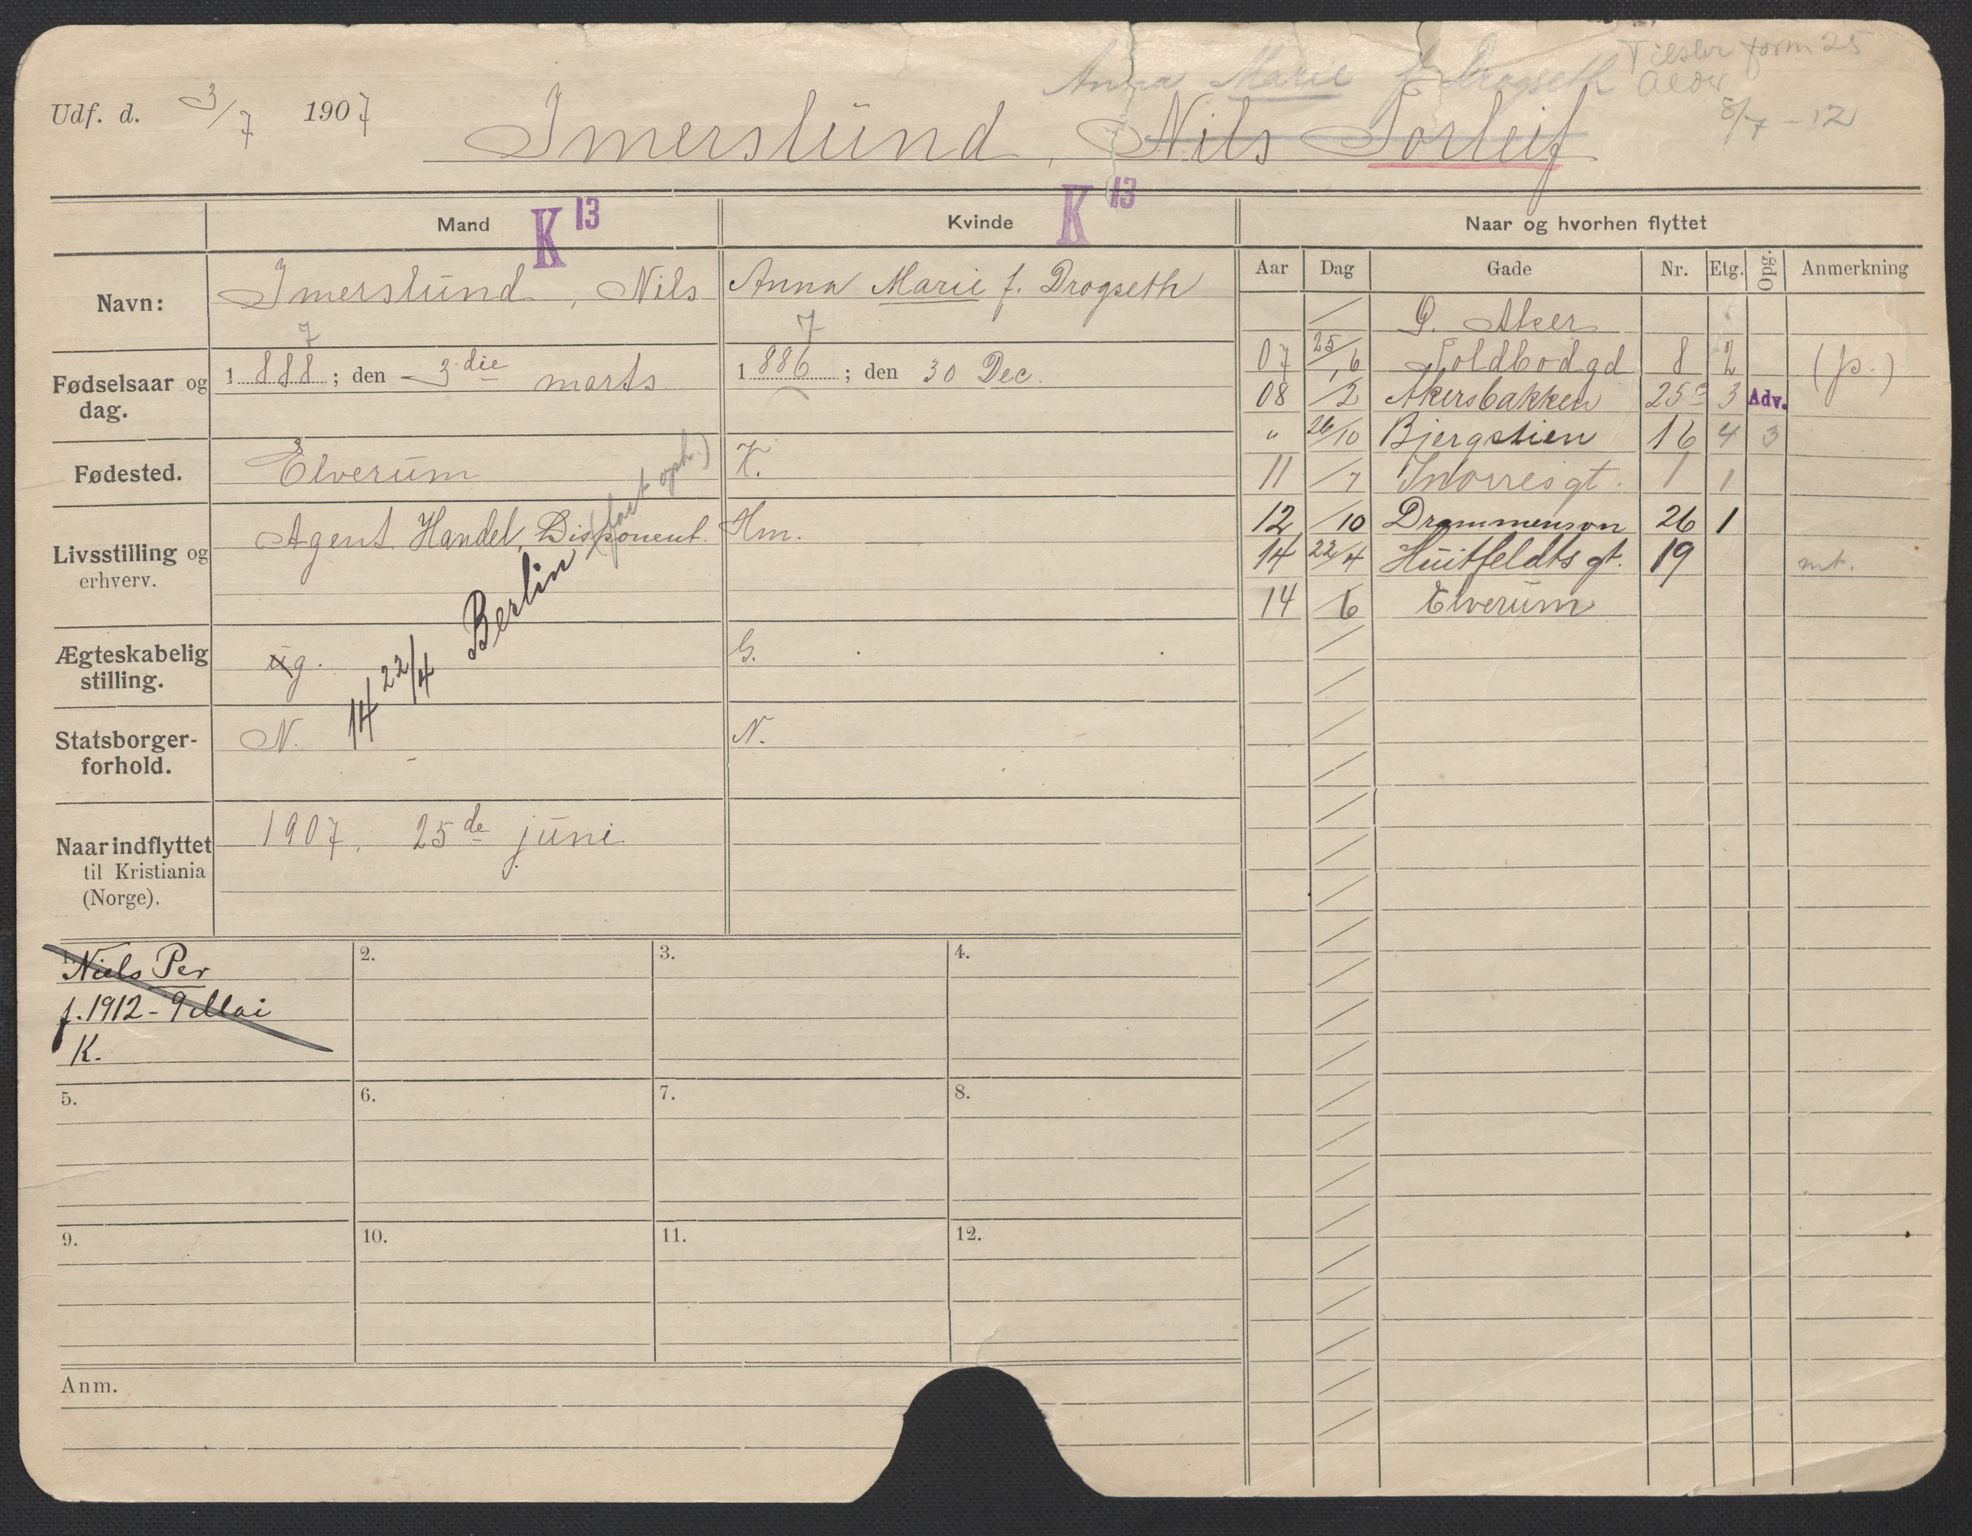 Anna Marie f. Drogseth
Tilslør form 25
8/7 - 12
Udf. d. 3/7 1907
Imerslund, Nils Torleif
Mand K 13
Kvinde K 13
Naar og hvorhen flyttet
Aar Dag Gade Nr. Etg. Opg. Anmerkning
Navn: Imerslund, Nils
Anna Marie f. Drogseth
Fødselsaar og dag.
7
1888; den 3die marts
7
1886; den 30 Dec.
Fødested.
Elverum
K.
Livsstilling og erhverv.
Agent Handel, Disponent.
(fast oph.)
Hm.
14 22/4 Berlin
Ægteskabelig stilling.
ug.
G.
Statsborger-
forhold.
N.
N.
Naar indflyttet
til Kristiania
(Norge).
1907. 25de juni
/ G. Aker
07 25/6 Toldbodgd 8 2 (p.)
08 1/2 Akersbakken 25c 3 Adv.
" 26/10 Bjergstien 16 4 3
11 /7 Snorresgt. 1 1
12 /10 Drammensvn 26 1
14 22/4 Huitfeldts gt. 19 mt.
14 /6 Elverum
1.
Niels Per
f. 1912 - 9 Mai
K.
2.
3.
4.
5.
6.
7.
8.
9.
10.
11.
12.
Anm.